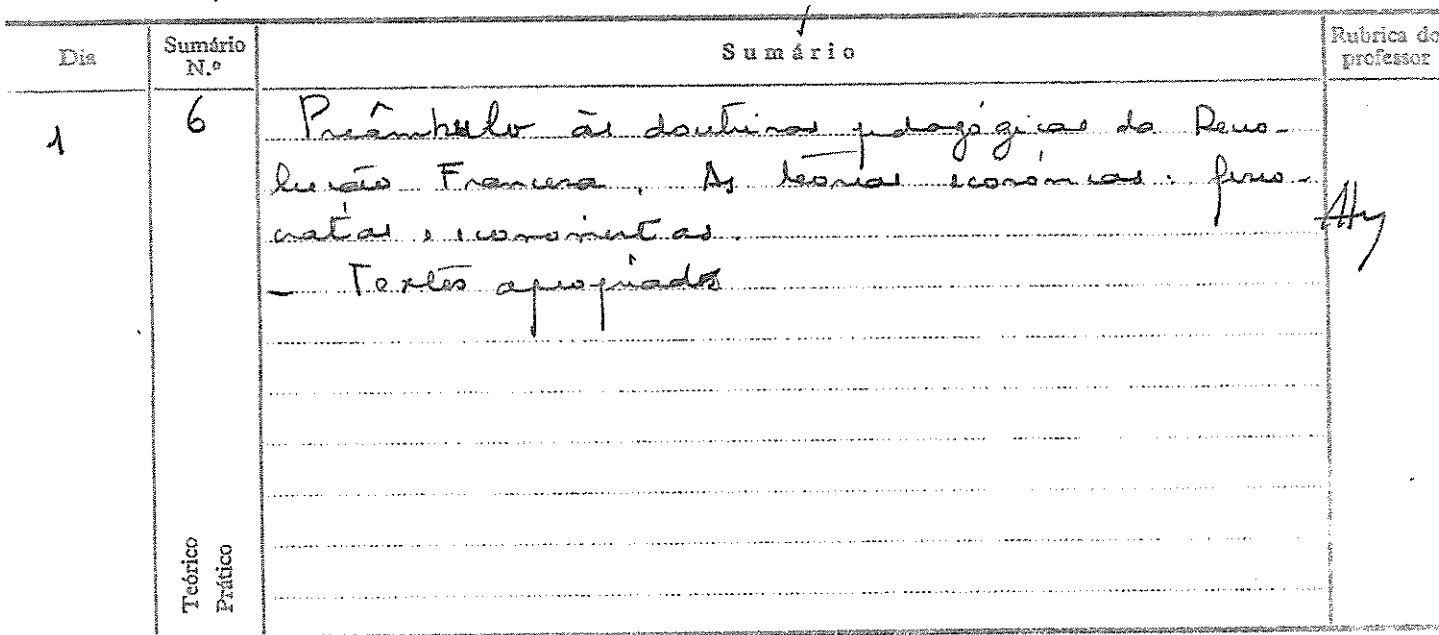 Dia
Sumário N.º
Sumário
Rubrica do professor
1
6
Preâmbulo às doutrinas pedagógicas da Revo-
lução Francesa. As teorias económicas: fisio-
cratas e economistas.
- Textos apropriados
Teórico
Prático